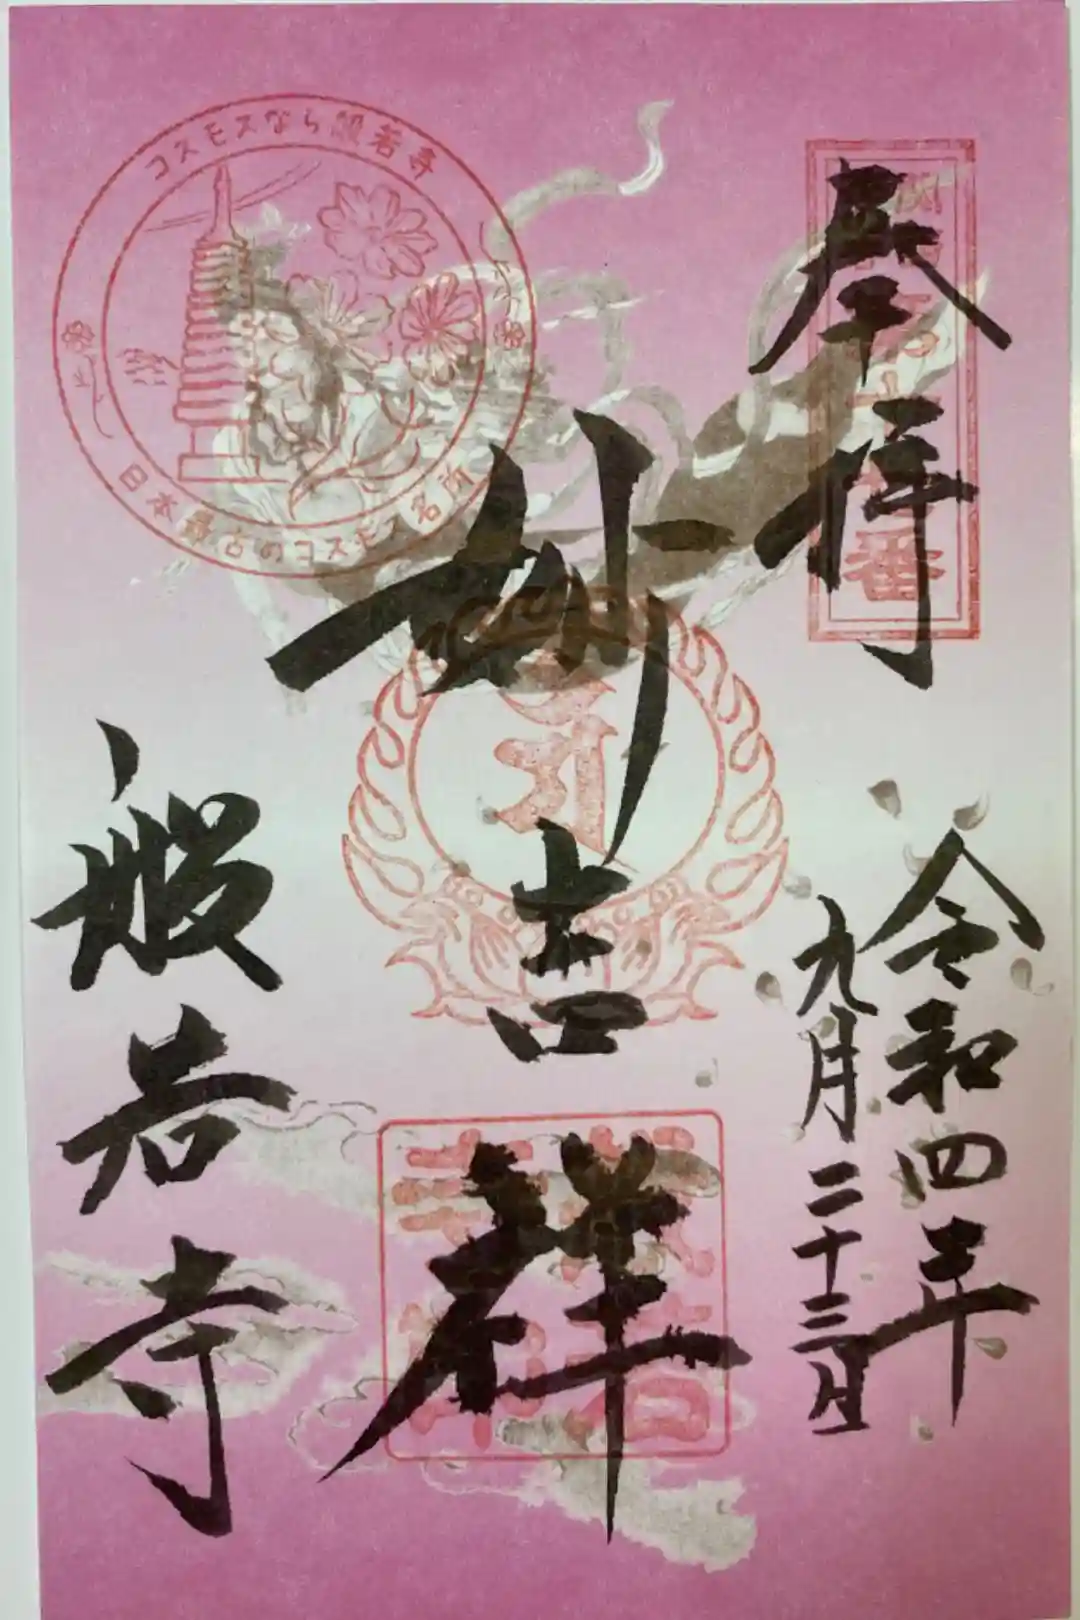 奉拝
令和四年
九月二十三日
妙吉祥
般若寺
コスモスなら般若寺
日本最古のコスモス名所
番